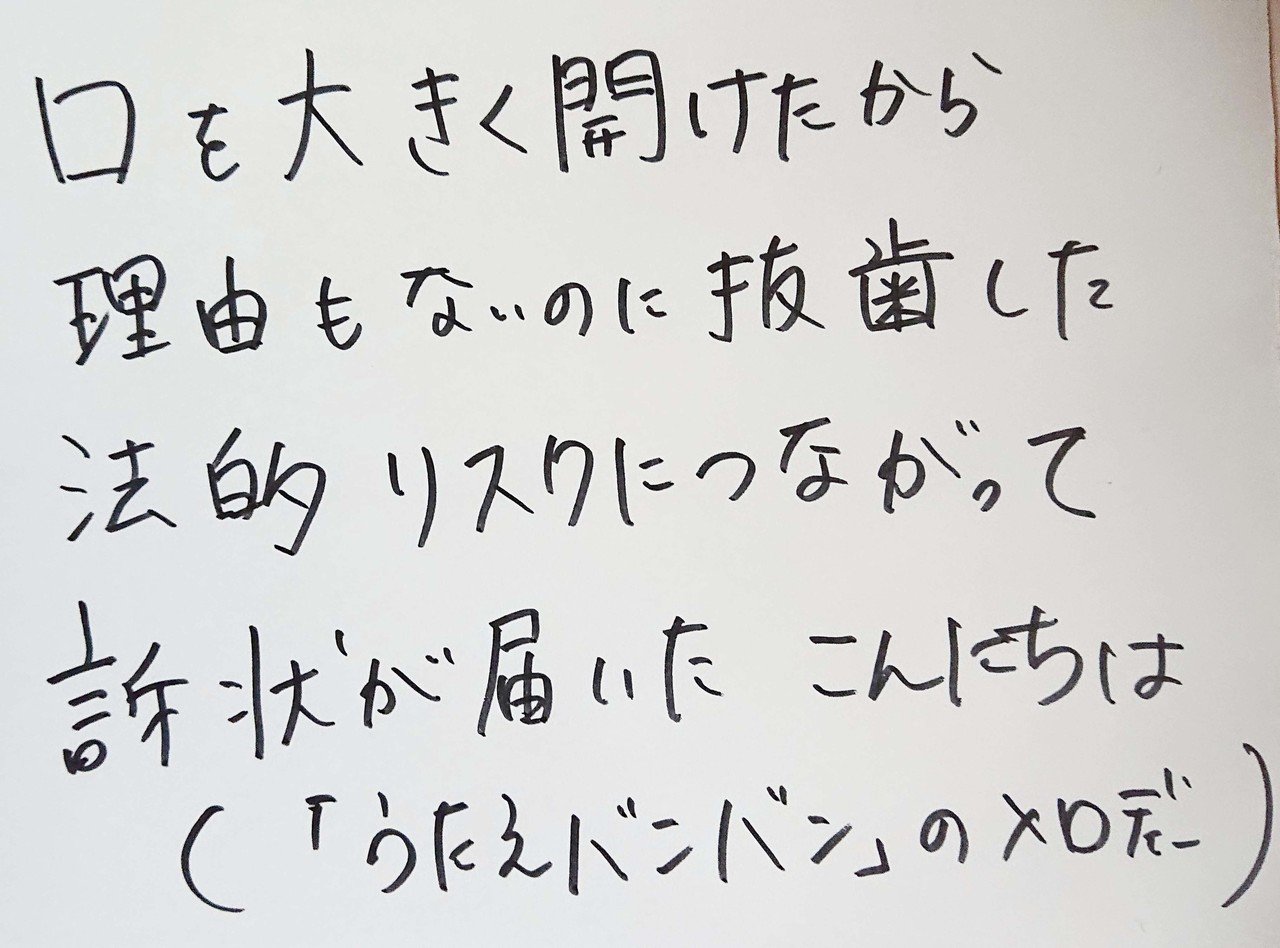 口を大きく開けたから
理由もないのに抜歯した
法的リスクにつながって
訴状が届いた こんにちは
(「うたえバンバン」のメロディー)